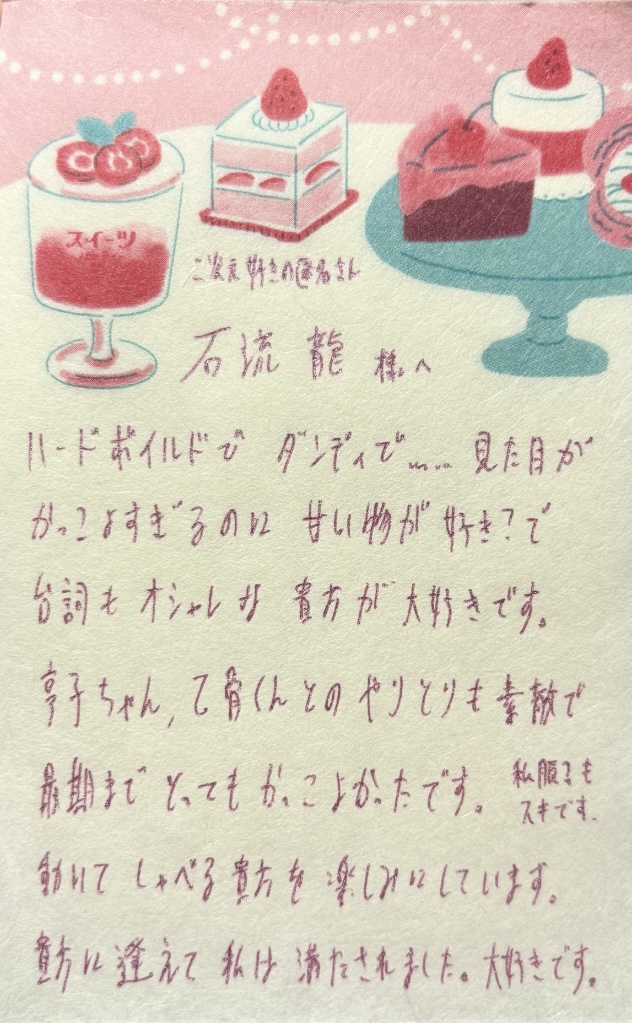 スイーツ
二次元好きの匿名さん
石流龍 様へ
ハードボイルドで ダンディで…… 見た目が
かっこよすぎるのに 甘い物が好き？で
台詞も オシャレな 貴方が 大好きです。
亨子ちゃん, 乙骨くんとの やりとりも 素敵で
最期まで とっても かっこよかったです。
私服も
スキです.
動いて しゃべる 貴方を 楽しみにしています。
貴方に 逢えて 私は 満たされました。大好きです。